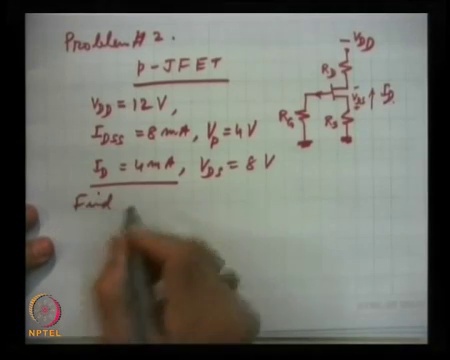 Problem # 2.
P-JFET
V_DD = 12 V,
I_DSS = 8 mA, V_p = 4 V
I_D = 4 mA, V_DS = 8 V
Find
-V_DD
R_D
V_DS
I_D
R_G
R_S
NPTEL